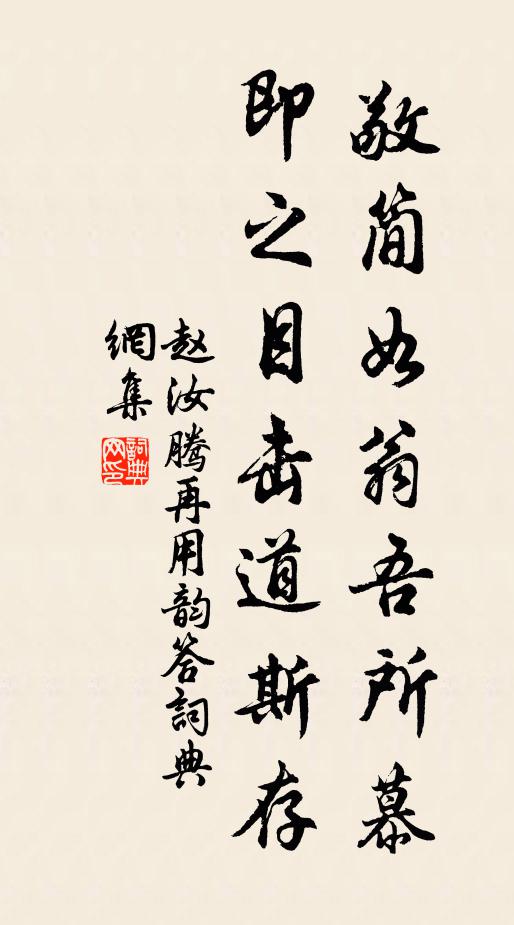 敬简如翁吾所慕
即之目击道斯存
赵汝腾再用韵答詞典
網集
詞典网印